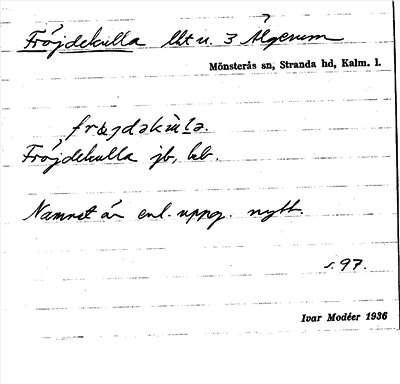 Fröjdekulla lht u. 3 Ålgerum
Mönsterås sn, Stranda hd, Kalm. l.
Fröjdekulla jb, kb.
Namnet är enl. uppg. nytt.
s. 97.
Ivar Modéer 1936